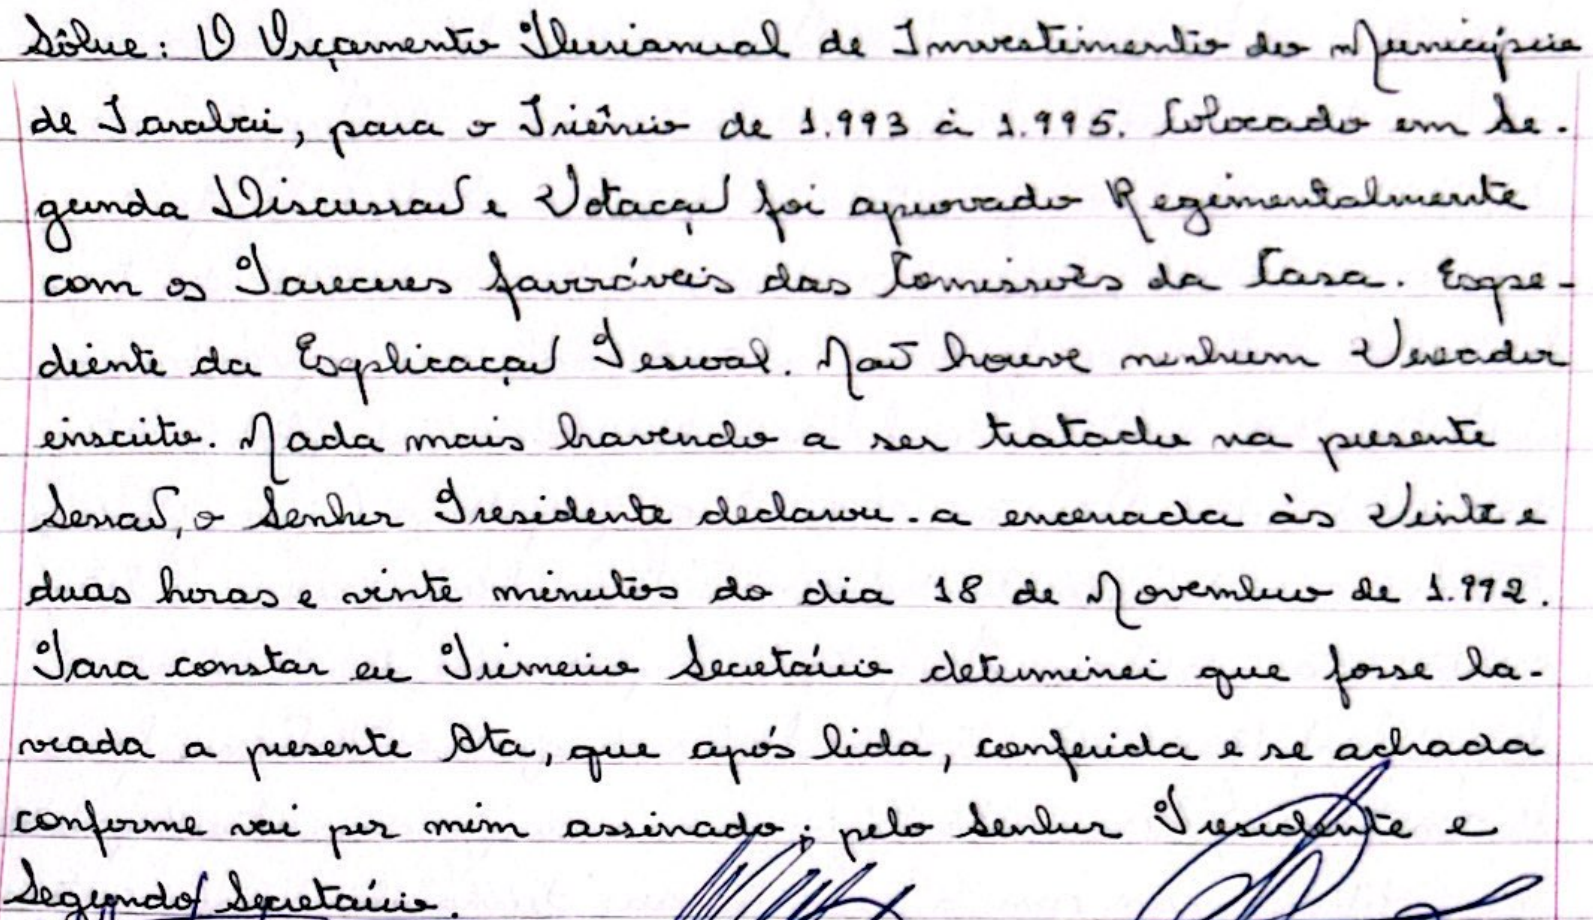 Sôbre: O Orçamento Plurianual de Investimento do Município
de Tarabai, para o Triênio de 1.993 à 1.995. Colocado em Se-
gunda Discussaõ e Votaçaõ foi aprovado Regimentalmente
com os Pareceres favoráveis das Comissões da Casa. Expe-
diente da Explicaçaõ Pessoal. Naõ houve nenhum Vereador
inscrito. Nada mais havendo a ser tratado na presente
Sessaõ, o Senhor Presidente declarou-a encerrada às Vinte e
duas horas e vinte minutos do dia 18 de Novembro de 1.992.
Para constar eu Primeiro Secretário determinei que fosse la-
vrada a presente Ata, que após lida, conferida e se achada
conforme vai por mim assinado; pelo Senhor Presidente e
Segundo Secretário.